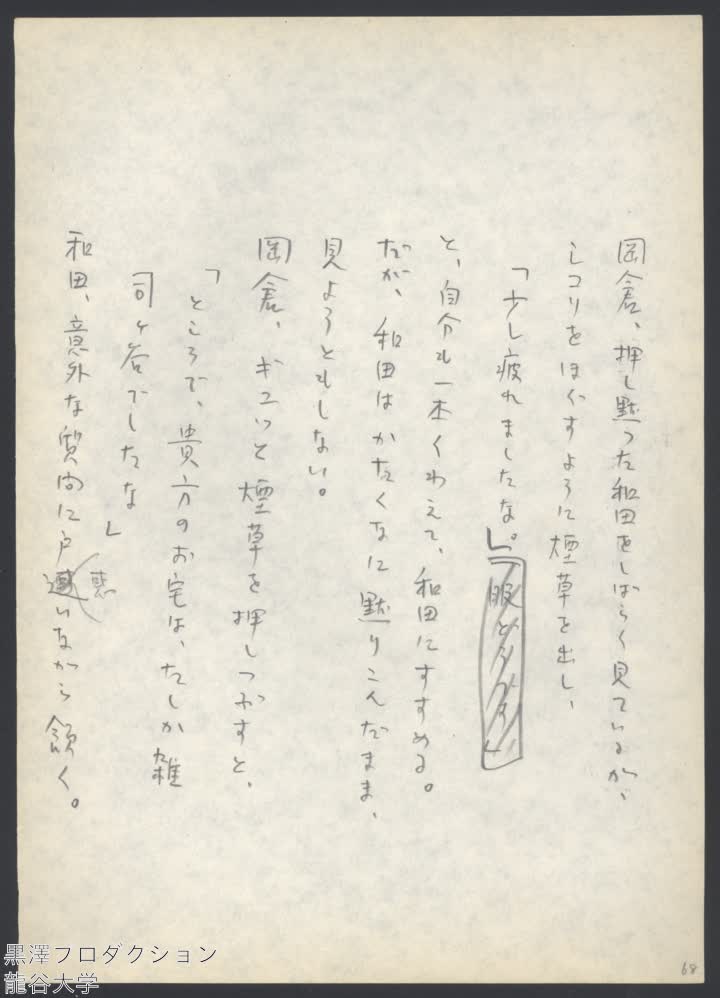 岡倉、押し黙った和田をしばらく見ているが、
シコリをほぐすように煙草を出し、
「少し疲れましたな。」一服どうです」
と、自分も一本くわえて、和田にすすめる。
だが、和田はかたくなに黙りこんだまま、
見ようともしない。
岡倉、ギュッと煙草を押しつぶすと、
「ところで、貴方のお宅は、たしか雑
司ヶ谷でしたな」
和田、意外な質問に戸惑いながら頷く。
68
黒澤プロダクション
龍谷大学